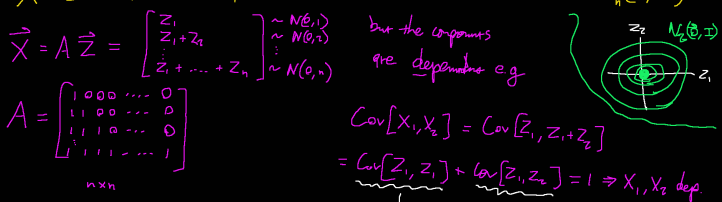 X⃗ = A Z⃗ = [ Z₁ ; Z₁+Z₂ ; ⋮ ; Z₁+....+Zₙ ] ~ N(0,1) ~ N(0,2) ⋮ ~ N(0,n)
but the components
are dependent e.g
Z₂
N₂(0⃗, I)
Z₁
A = [ 1 0 0 0 ..... 0 ; 1 1 0 0 .... 0 ; 1 1 1 0 .... 0 ; ⋮ ; 1 1 1 1 ... .... 1 ]
n×n
Cov[X₁,X₂] = Cov[Z₁, Z₁+Z₂]
= Cov[Z₁, Z₁] + Cov[Z₁, Z₂] = 1 ⇒ X₁, X₂ dep.